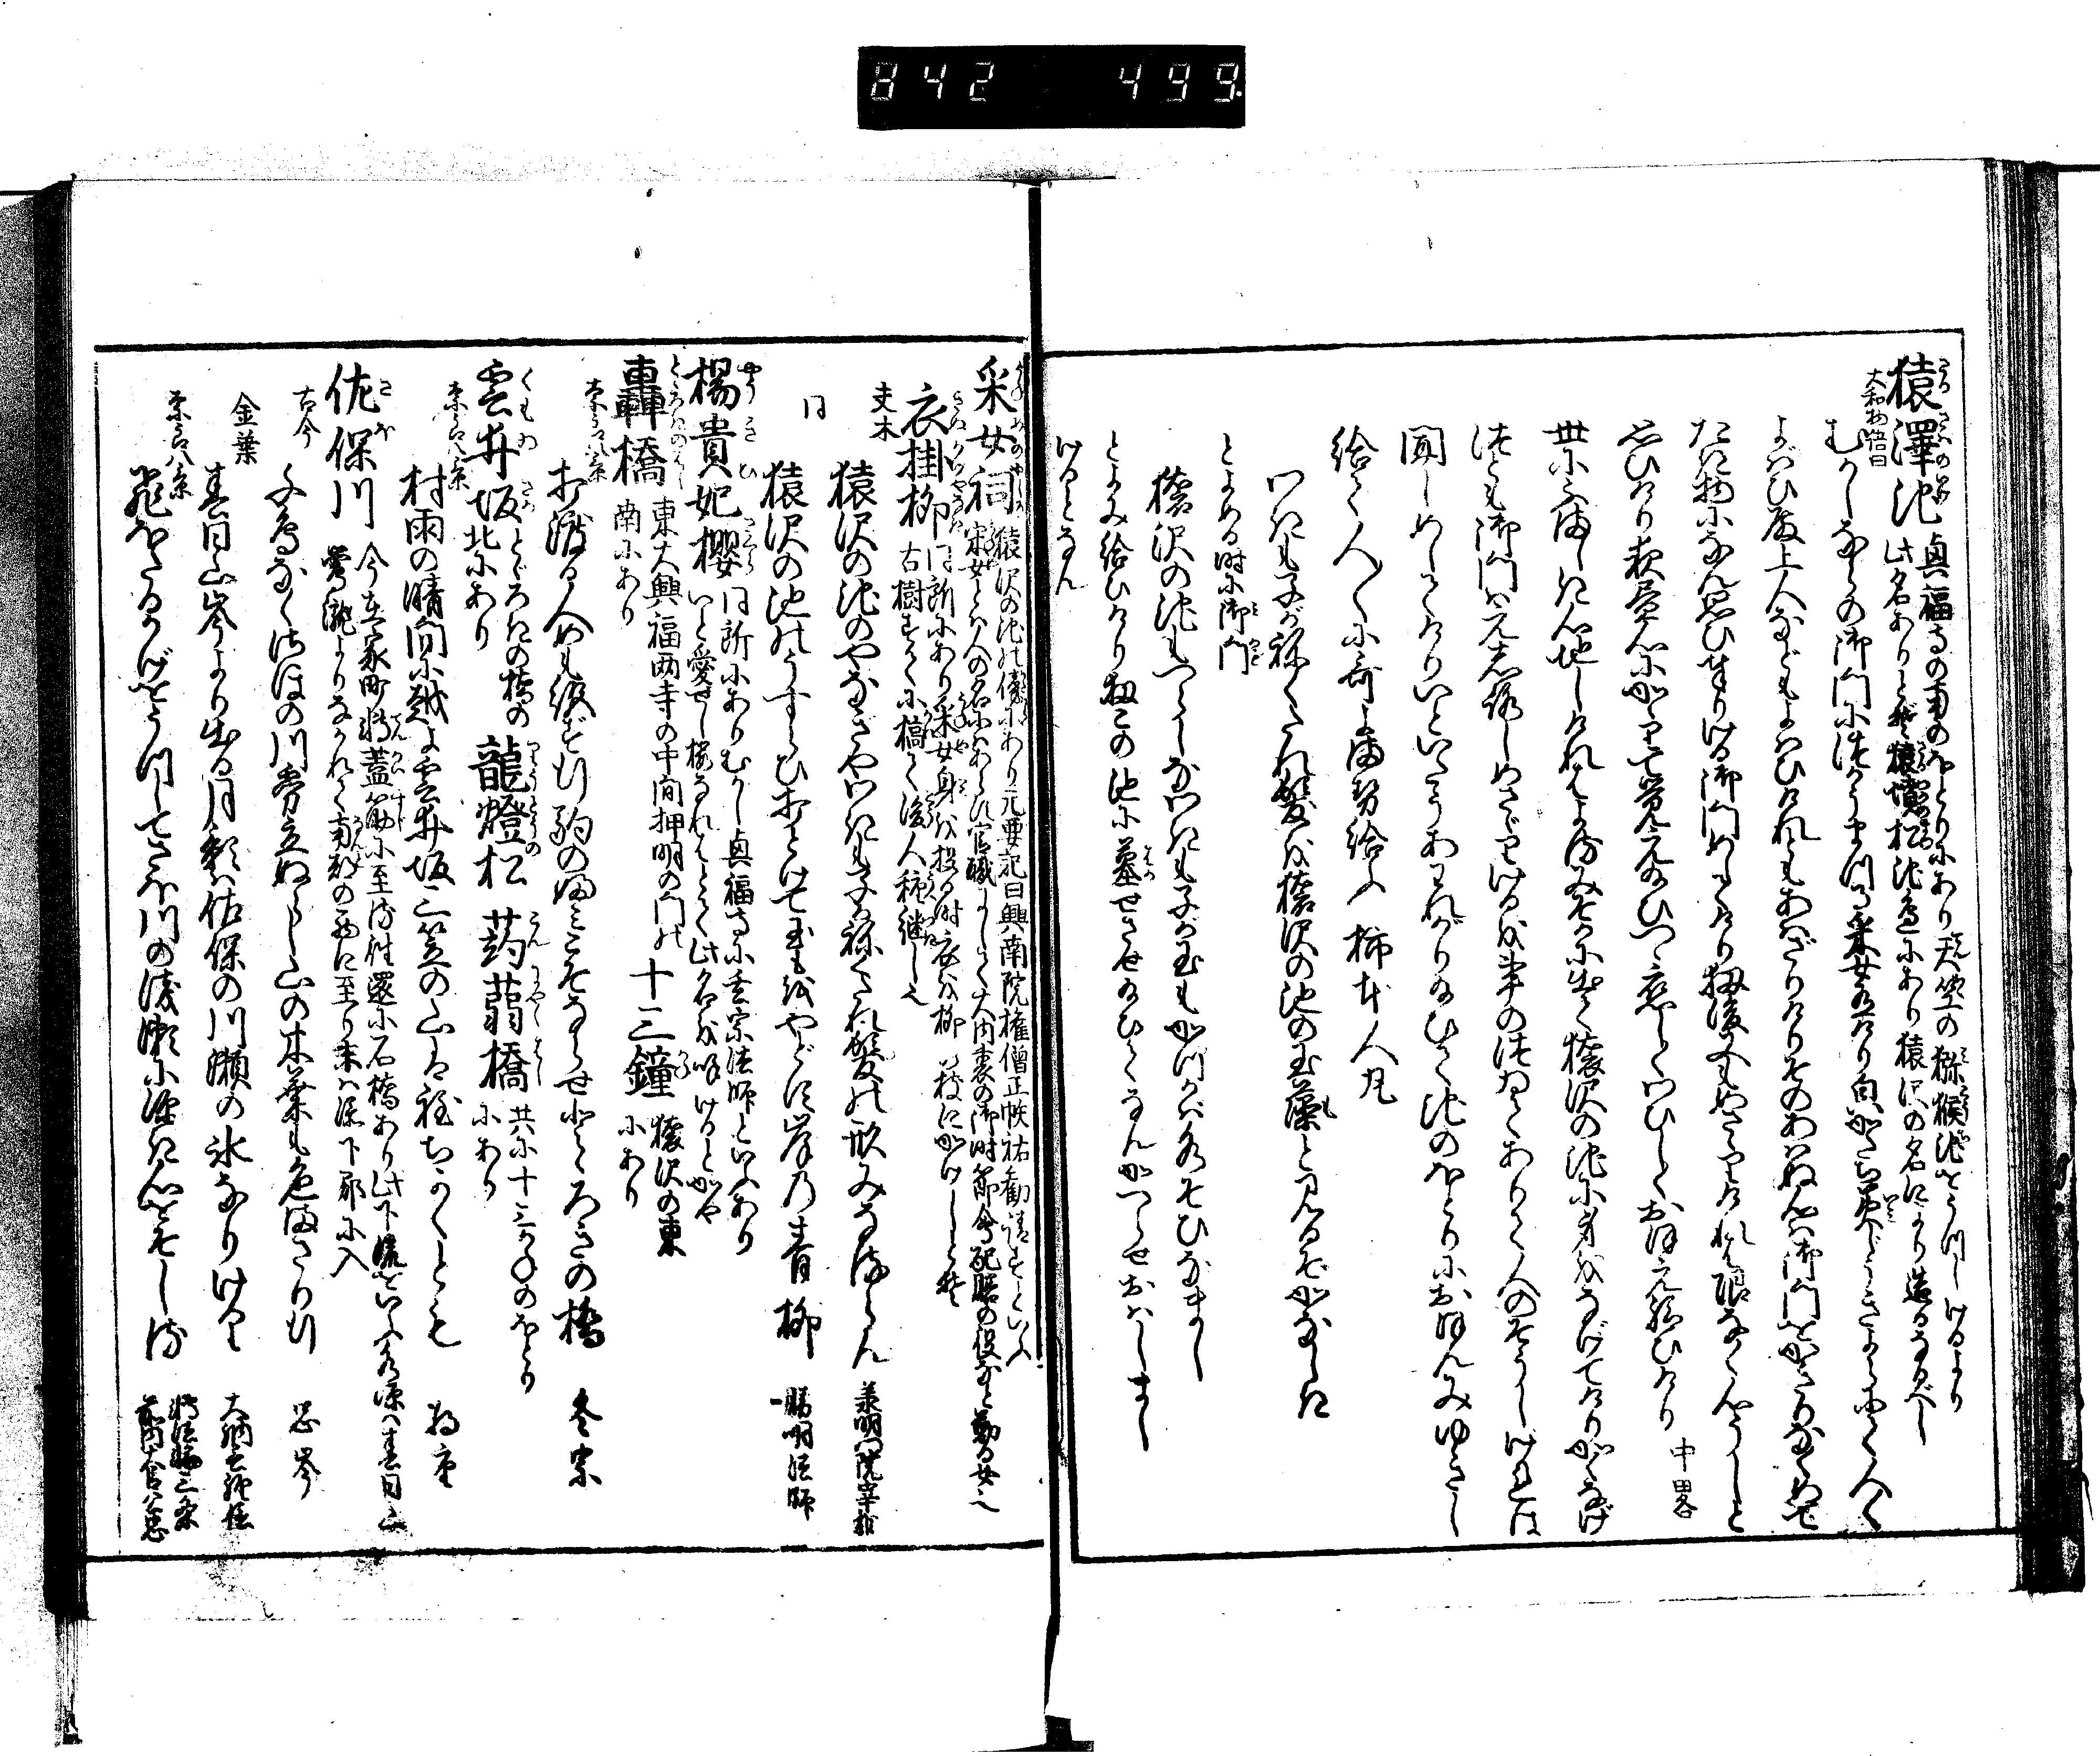 842 499.
猿澤池 興福寺の南のほとりにあり天竺の獼猴池をうつしけるより
此名ありとぞ猿澤の名により造るなるべし
大和物語曰
むかしならの御門につかうまつる采女ありけりかほかたちいみじうきよらにて人々
よばひ殿上人などもよばひけれどもあはざりけりそのあはぬ心は御門をかぎりなくめで
たき物になん思ひ奉りける御門めしてけり扨後又もめさゞりければ限なく心うしと
思ひけり夜昼心にかゝりて覚え給ひつゝ恋しくわびしくおぼえ給ひけり 中畧
世にふまじき心地しければよるみそかに出て猿沢の池に身をなげてけりかくなげ
つとも御門はえしろしめさゞりけるを事のつゐでありて人のそうしければ
聞しめしてけりいといたうあはれがり給ひて池のほとりにおほんみゆきし
給て人〳〵に哥よませ給ふ 柿本人丸
わぎも子がねくたれ髪を猿沢の池の玉藻と見るぞかなしき
とよめる時に御門
猿沢の池もつらしなわぎも子が玉もかづかば水ぞひなまし
とよみ給ひけり扨この池に墓せさせ給ひてなんかへらせおはしまし
けるとなん
采女祠 猿沢の池の傍にあり元要記曰興南院権僧正帙祐勧請すといふ
采女とは人の名にはあらず官職にして大内裏の御時節会配膳の役など勤る女也
衣掛柳 同所にあり采女身を投る時衣を柳の枝にかけしとぞ
古樹はすでに槁て後人種継し也
夫木
猿沢の池のやなぎやわぎも子がねくたれ髪の形みなるらん 兼明門院宰相
同
猿沢の池のうすらひ打とけて玉もをやどす岸の青柳 勝明法師
楊貴妃櫻 同所にありむかし興福寺に玄宗法師といふあり
いと愛せし桜なればとて此名を呼けるとかや
轟橋 東大興福両寺の中間押明の門の
南にあり
十三鐘 猿沢の東
にあり
奈良八景
打渡る人めも絶ず行駒のふみこそならせとゞろきの橋 冬宗
雲井坂 とゞろきの橋の
北にあり
龍燈松 蒟蒻橋 共に十三かねのほとり
にあり
奈良八景
村雨の晴間に越よ雲井坂三笠の山は程ちかくとも
佐保川
今在家町轉蓋筋に至る往還に石橋あり此下流をいふ水源は春日山
鶯瀧よりながれて南都の西に至り末は添下郡に入
古今
千鳥なくさほの川霧立ぬらし山の木葉も色まさり行 忠岑
金葉
春日山岑より出る月影は佐保の川瀬の氷なりけり 大納言経信
奈良八景
飛ほたるかげをうつしてさほ川の浅瀬に深き心をぞしる